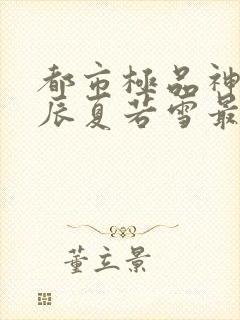 都市極品神
辰夏若雪最
董立景